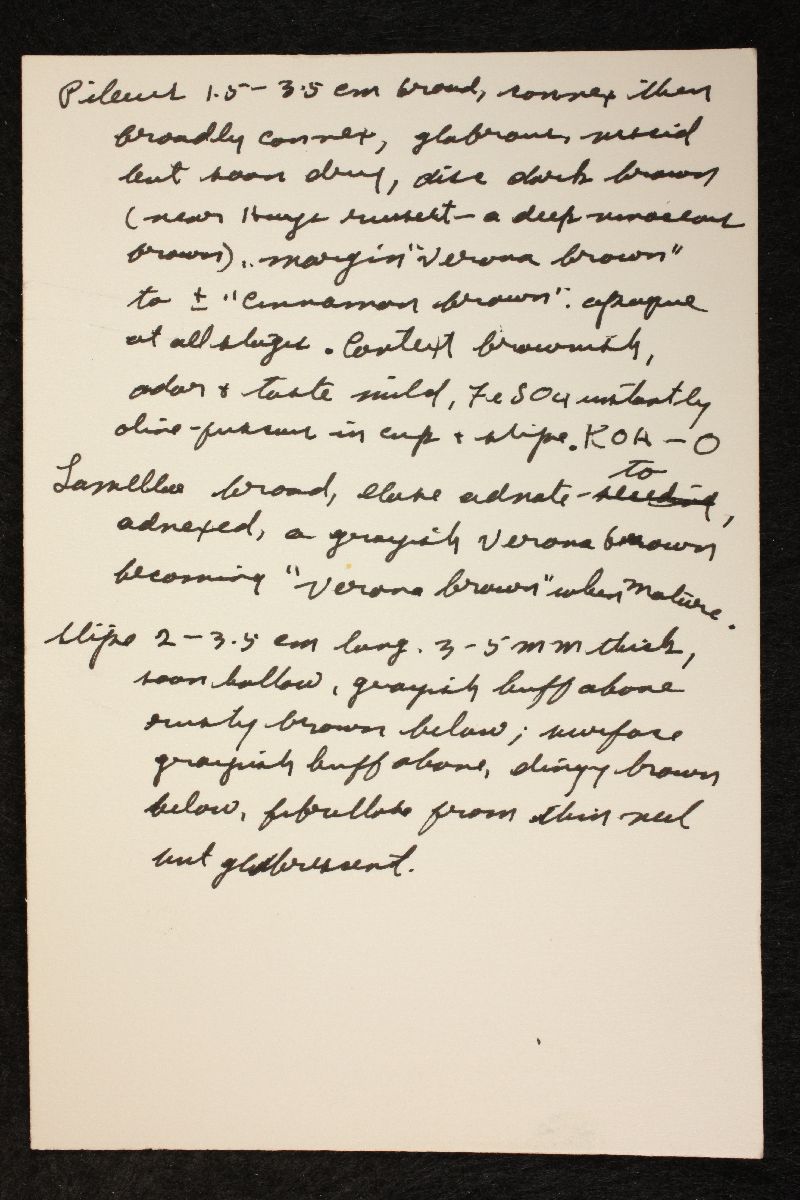 Pileus 1.5-3.5 cm broad, convex then
broadly convex, glabrous, viscid
but soon dry, disc dark brown
(near Kays russet - a deep vinaceous
brown), margin "Verona brown"
to ± "Cinnamon brown". opaque
at all stages. Context brownish,
odor & taste mild, FeSO4 instantly
olive-fuscous in cap & stipe. KOH - O
Lamellae broad, close adnate - to
adnexed, a grayish Verona brown
becoming "Verona brown" when mature.
Stipe 2-3.5 cm long. 3-5 mm thick,
soon hollow, grayish buff above
rusty brown below; surface
grayish buff above, dingy brown
below, fibrillose from thin veil
but glabrescent.